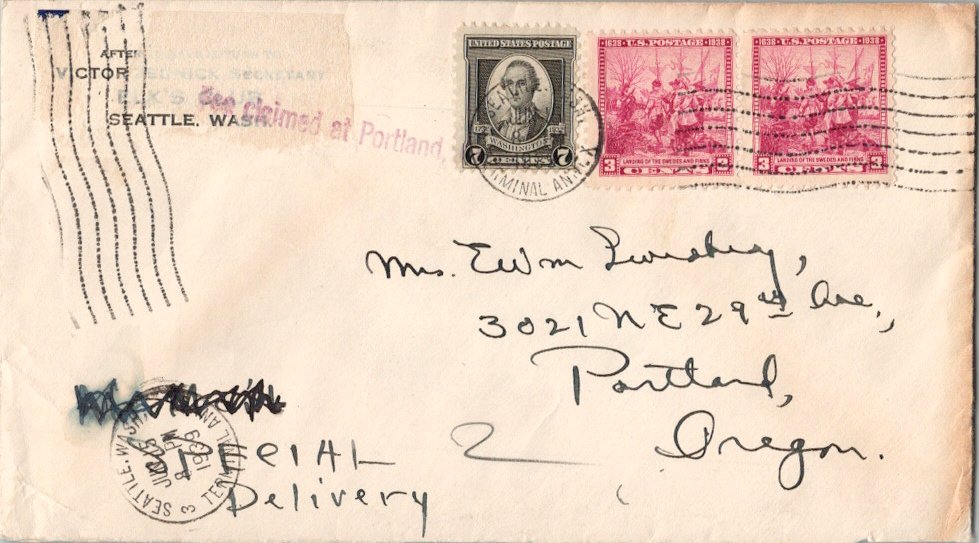 AFTER
VICTOR ZEDNICK, SECRETARY
ELK'S CLUB
SEATTLE, WASH.
Fee Claimed at Portland,
UNITED STATES POSTAGE
WASHINGTON
7 CENTS 7
1638 U.S. POSTAGE 1938
LANDING OF THE SWEDES AND FINNS
3 CENTS 3
1638 U.S. POSTAGE 1938
LANDING OF THE SWEDES AND FINNS
3 CENTS 3
TERMINAL ANNEX
Mrs. E Wm
3021 NE 29th Ave.,
Portland,
Oregon.
SPECIAL
Delivery
SEATTLE, WASH.
JUN
8 PM
1939
3 TERMINAL AN